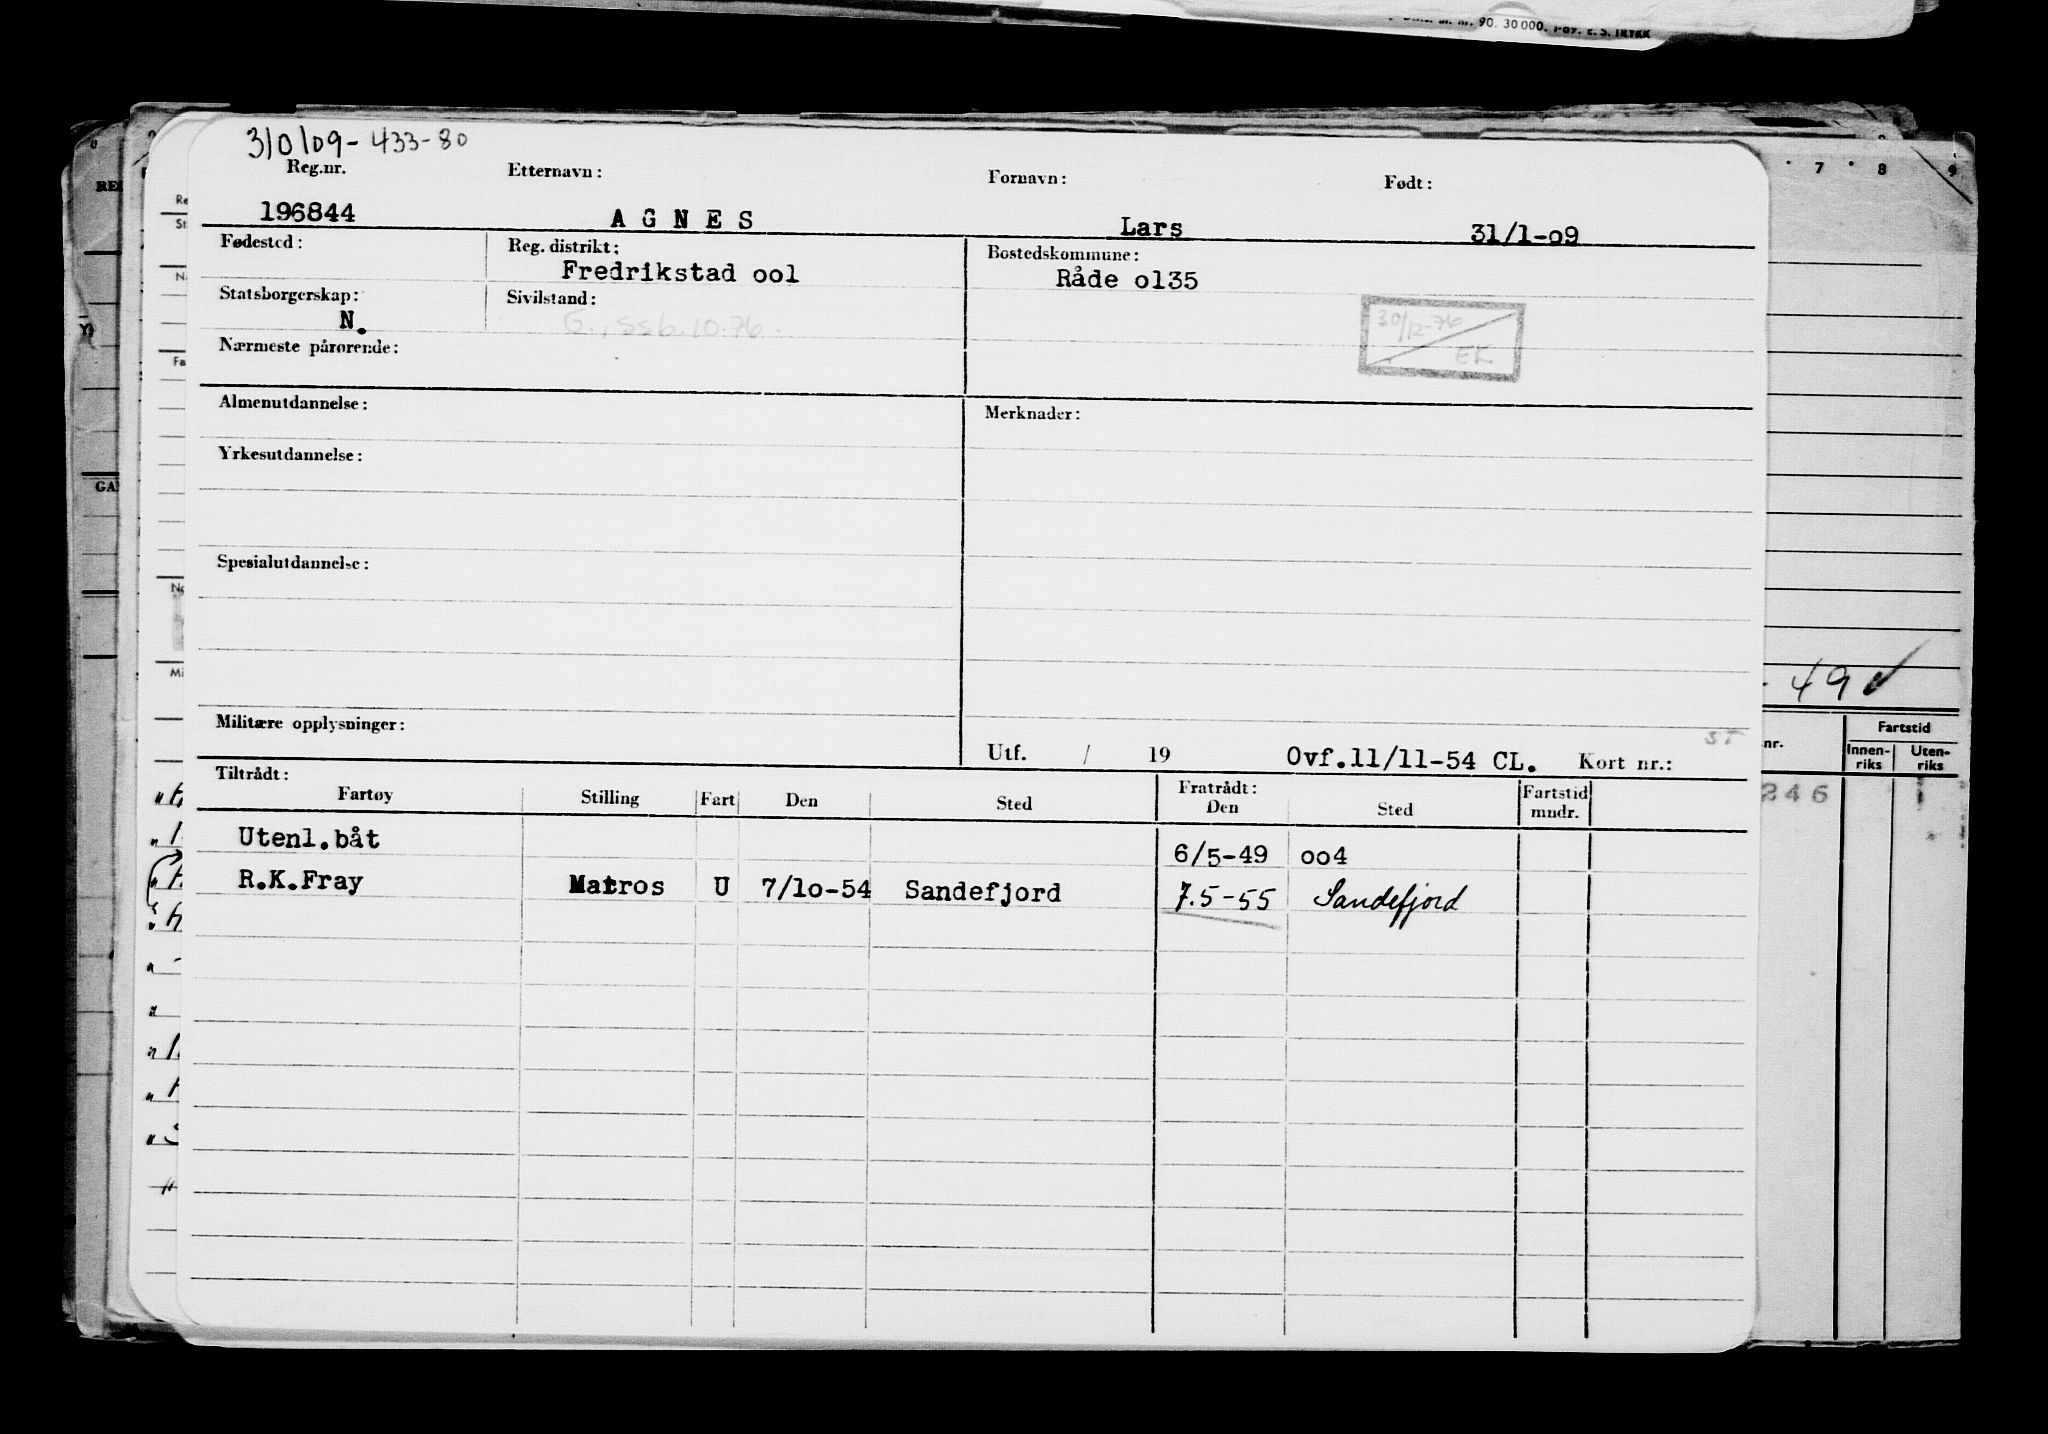 nr. 90. 30 000. E. S. TRYKK
310109-433-80
Reg.nr. Etternavn: Fornavn: Født:
196844 AGNES Lars 31/1-09
Fødested: Reg. distrikt: Bostedskommune:
Fredrikstad ool Råde o135
Statsborgerskap: Sivilstand:
N. G., ssb.10.76.
30/12-76
EK
Nærmeste pårørende:
Almenutdannelse: Merknader:
Yrkesutdannelse:
Spesialutdannelse:
Militære opplysninger:
ST
Utf. / 19 Ovf.11/11-54 CL. Kort nr.:
Tiltrådt: Fratrådt:
Fartøy Stilling Fart Den Sted Den Sted Fartstid mndr.
Utenl.båt 6/5-49 oo4
R.K.Fray Matros U 7/1o-54 Sandefjord 7.5-55 Sandefjord
7 8 9
49
Fartstid
nr. Innen-riks Uten-riks
246